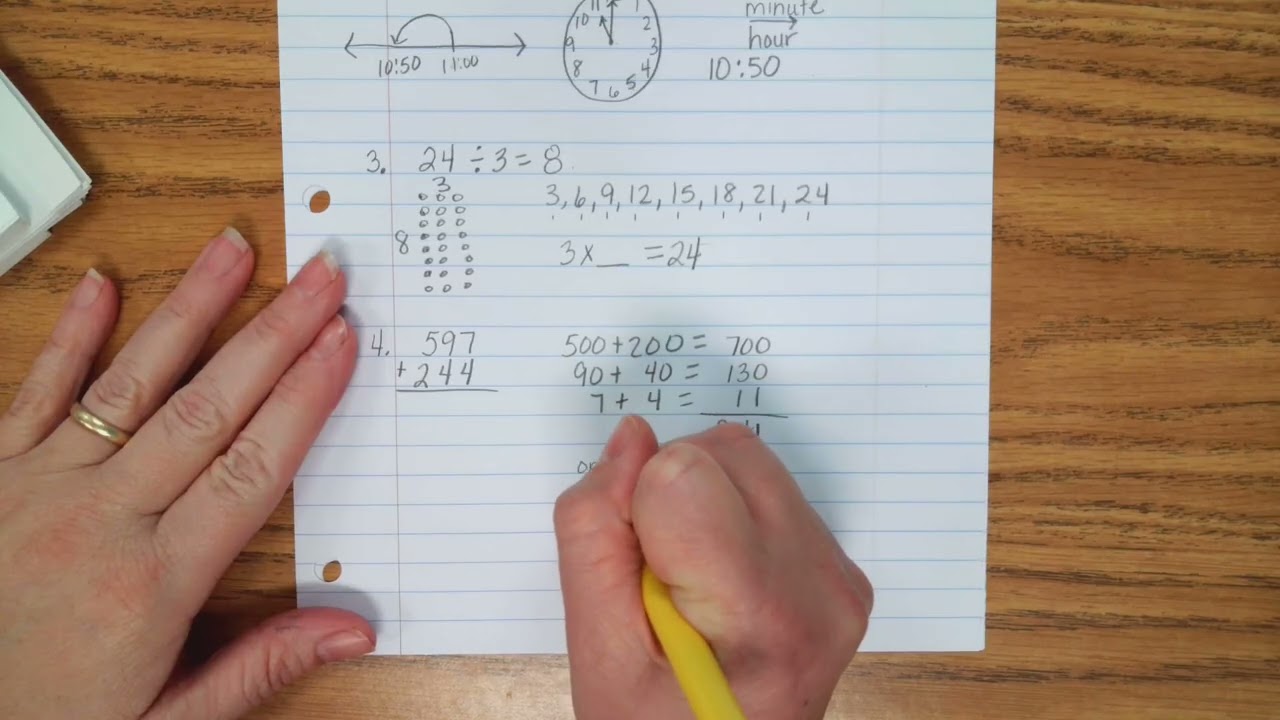 11 1
10 2
9 3
8 4
7 6 5
minute
hour
10:50 11:00
10:50
3. 24 ÷ 3 = 8
3
8
3, 6, 9, 12, 15, 18, 21, 24
3 x __ = 24
4. 597
+ 244
500 + 200 = 700
90 + 40 = 130
7 + 4 = 11